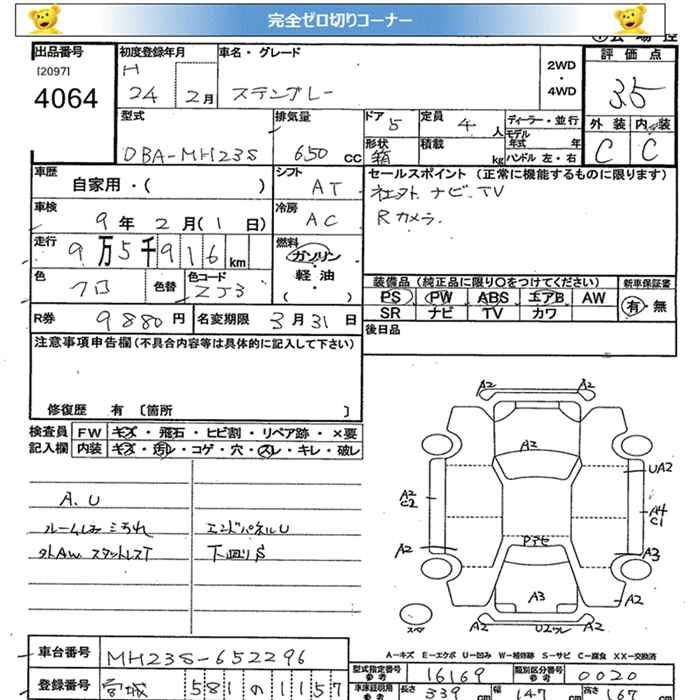 完全ゼロ切りコーナー
出品番号
[2097]
4064
初度登録年月
H
24 2月
車名・グレード
スティングレー
2WD
・
4WD
評価点
3.5
外装 内装
C C
型式
DBA-MH23S
排気量
650 cc
ドア 5
形状 箱
定員 4 人
積載 kg
ディーラー・並行
モデル年式 年
ハンドル 左・右
車歴
自家用・( )
シフト
AT
セールスポイント (正常に機能するものに限ります)
社外 ナビ TV
Rカメラ
車検
9年 2月 (1日)
冷房
AC
走行
9万5千916km
燃料
ガソリン
・
軽油
・
( )
色
クロ
色替
色コード
ZJ3
装備品 (純正品に限り○をつけてください)
PS PW ABS エアB AW
SR ナビ TV カワ
新車保証書
有・無
R券 9880円
名変期限 3月31日
後日品
注意事項申告欄 (不具合内容等は具体的に記入して下さい)
修復歴 有 [箇所 ]
検査員記入欄
FW キズ・飛石・ヒビ割・リペア跡・×要
内装 キズ・汚レ・コゲ・穴・スレ・キレ・破レ
A.U
ルームしみ ミヨゴレ
外AW スタットレスT
エンドパネルU
下廻りS
A2 A2
A2
UA2
A2
C2
A4
C1
A2
A3
A3
A2
スペア
A2
A=キズ E=エクボ U=凹み W=補修跡 S=サビ C=腐食 XX=交換済
車台番号 MH23S-652296
登録番号 宮城 581 の 1157
型式指定番号 16169
類別区分番号 0020
長さ 339 cm
幅 147 cm
高さ 167 cm